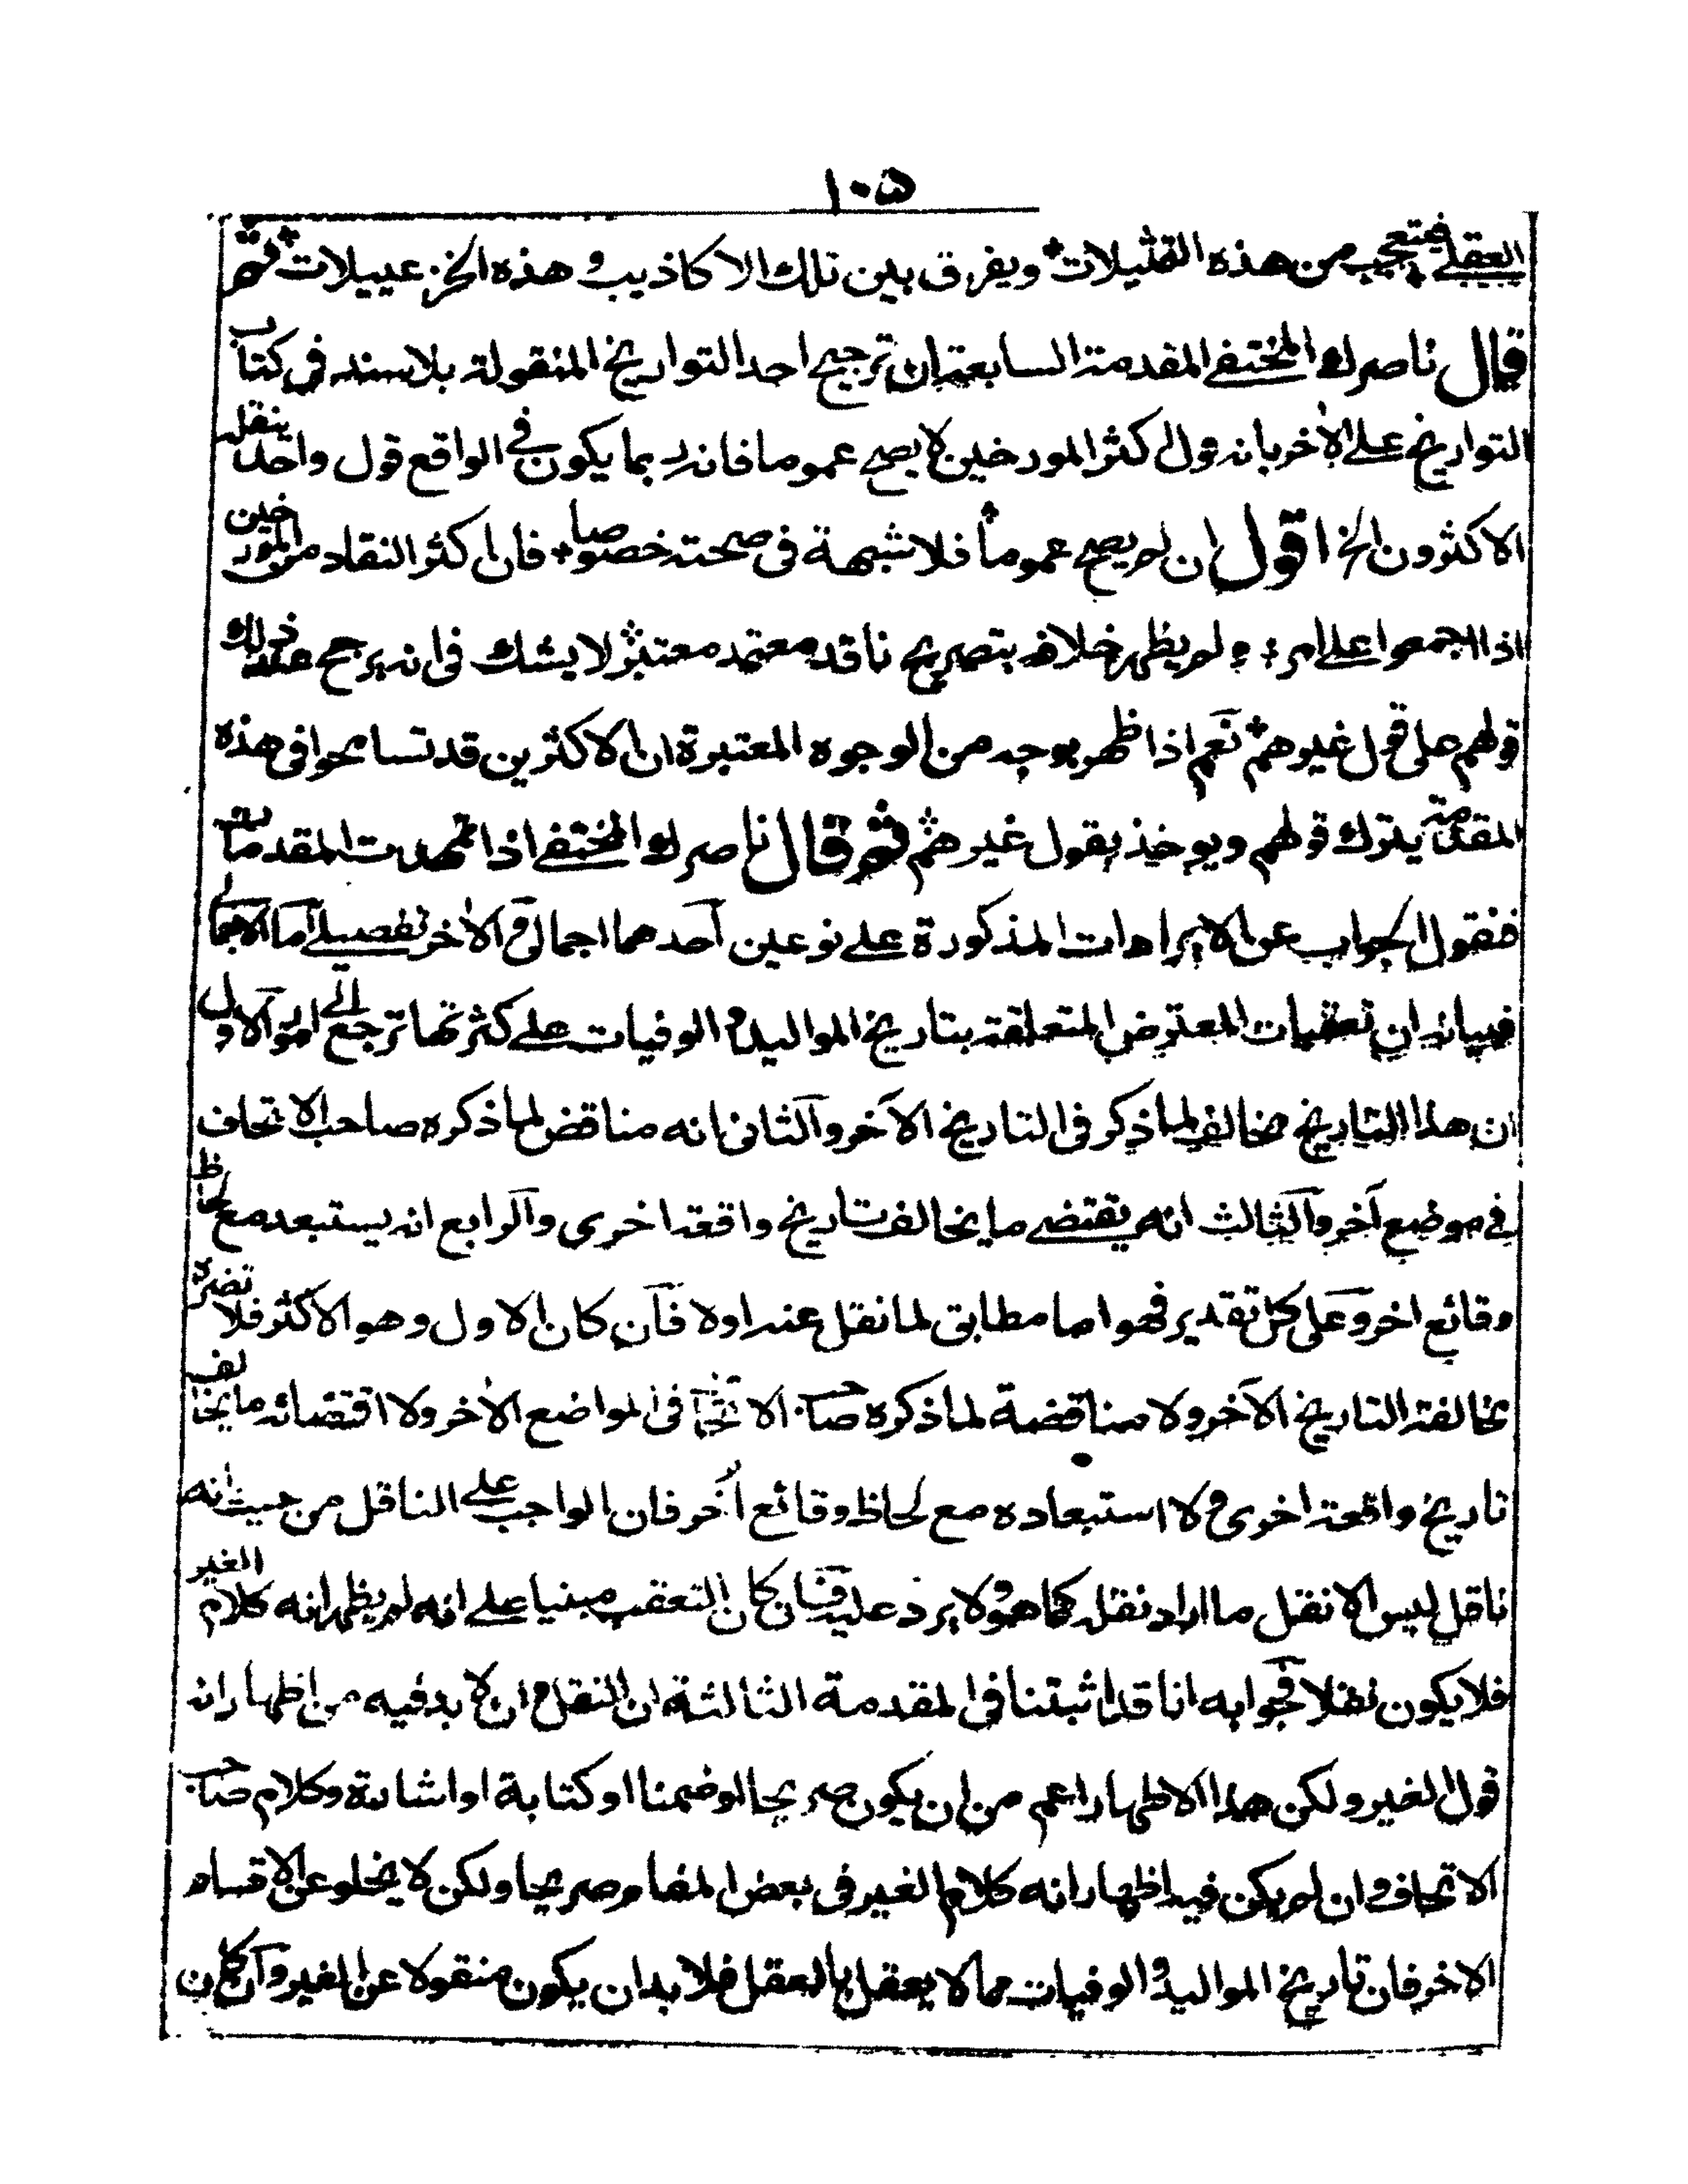 ١٠٥
العقل فتعجب من هذه التمثيلات ويفرق بين تلك الاكاذيب وهذه الخزعبيلات ثم
قال ناصرك المختفى المقدمة السابعة ان ترجيح احد التواريخ المنقولة بلا سند فى كتاب
التواريخ على الاخر بانه قول اكثر المورخين لا يصح عموما فانه ربما يكون فى الواقع قول واحد ينقله
الاكثرون الخ اقول ان لم يصح عموما فلا شبهة فى صحته خصوصا فان اكثر النقاد من المورخين
اذا اجمعوا على امر ولم يظهر خلافه بتصريح ناقد معتمد معتبر لا يشك فى انه يرجح عند ذلك
قولهم على قول غيرهم نعم اذا ظهر بوجه من الوجوه المعتبرة ان الاكثرين قد تسامحوا فى هذه
المقدمة يترك قولهم ويوخذ بقول غيرهم ثم قال ناصرك المختفى اذا تمهدت المقدمات
فنقول الجواب عن الايرادات المذكورة على نوعين احدهما اجمالى والاخر تفصيلى اما الاجمالى
فبيانه ان تعقبات المعترض المتعلقة بتاريخ المواليد والوفيات على كثرتها ترجع الى امور الاول
ان هذا التاريخ مخالف لما ذكر فى التاريخ الآخر والثانى انه مناقض لما ذكره صاحب الاتحاف
فى موضع آخر والثالث انه يقتضى ما يخالف تاريخ واقعة اخرى والرابع انه يستبعد مع لحاظ
وقائع اخر وعلى كل تقدير فهو اما مطابق لما نقل عنه اولا فان كان الاول وهو الاكثر فلا تضره
مخالفته التاريخ الآخر ولا مناقضة لما ذكره صاحب الاتحاف فى المواضع الاخر ولا اقتضائه ما يخالف
تاريخ واقعة اخرى ولا استبعاده مع لحاظ وقائع اخر فان الواجب على الناقل من حيث انه
ناقل ليس الا نقل ما اراد نقله كما هو ولا يرد عليه فان كان التعقب مبنيا على انه لم يظهر انه كلام الغير
فلا يكون نقلا فجوابه انا قد اثبتنا فى المقدمة الثالثة ان النقل وان لا بد فيه من اظهار انه
قول الغير ولكن هذا الاظهار اعم من ان يكون صريحا او ضمنا او كتابة او اشارة وكلام صاحب
الاتحاف وان لم يكن فيه اظهار انه كلام الغير فى بعض المقام صريحا ولكن لا يخلو عن الاقسام
الاخر فان تاريخ المواليد والوفيات مما لا يعقل بالعقل فلا بد ان يكون منقولا عن الغير وان كان